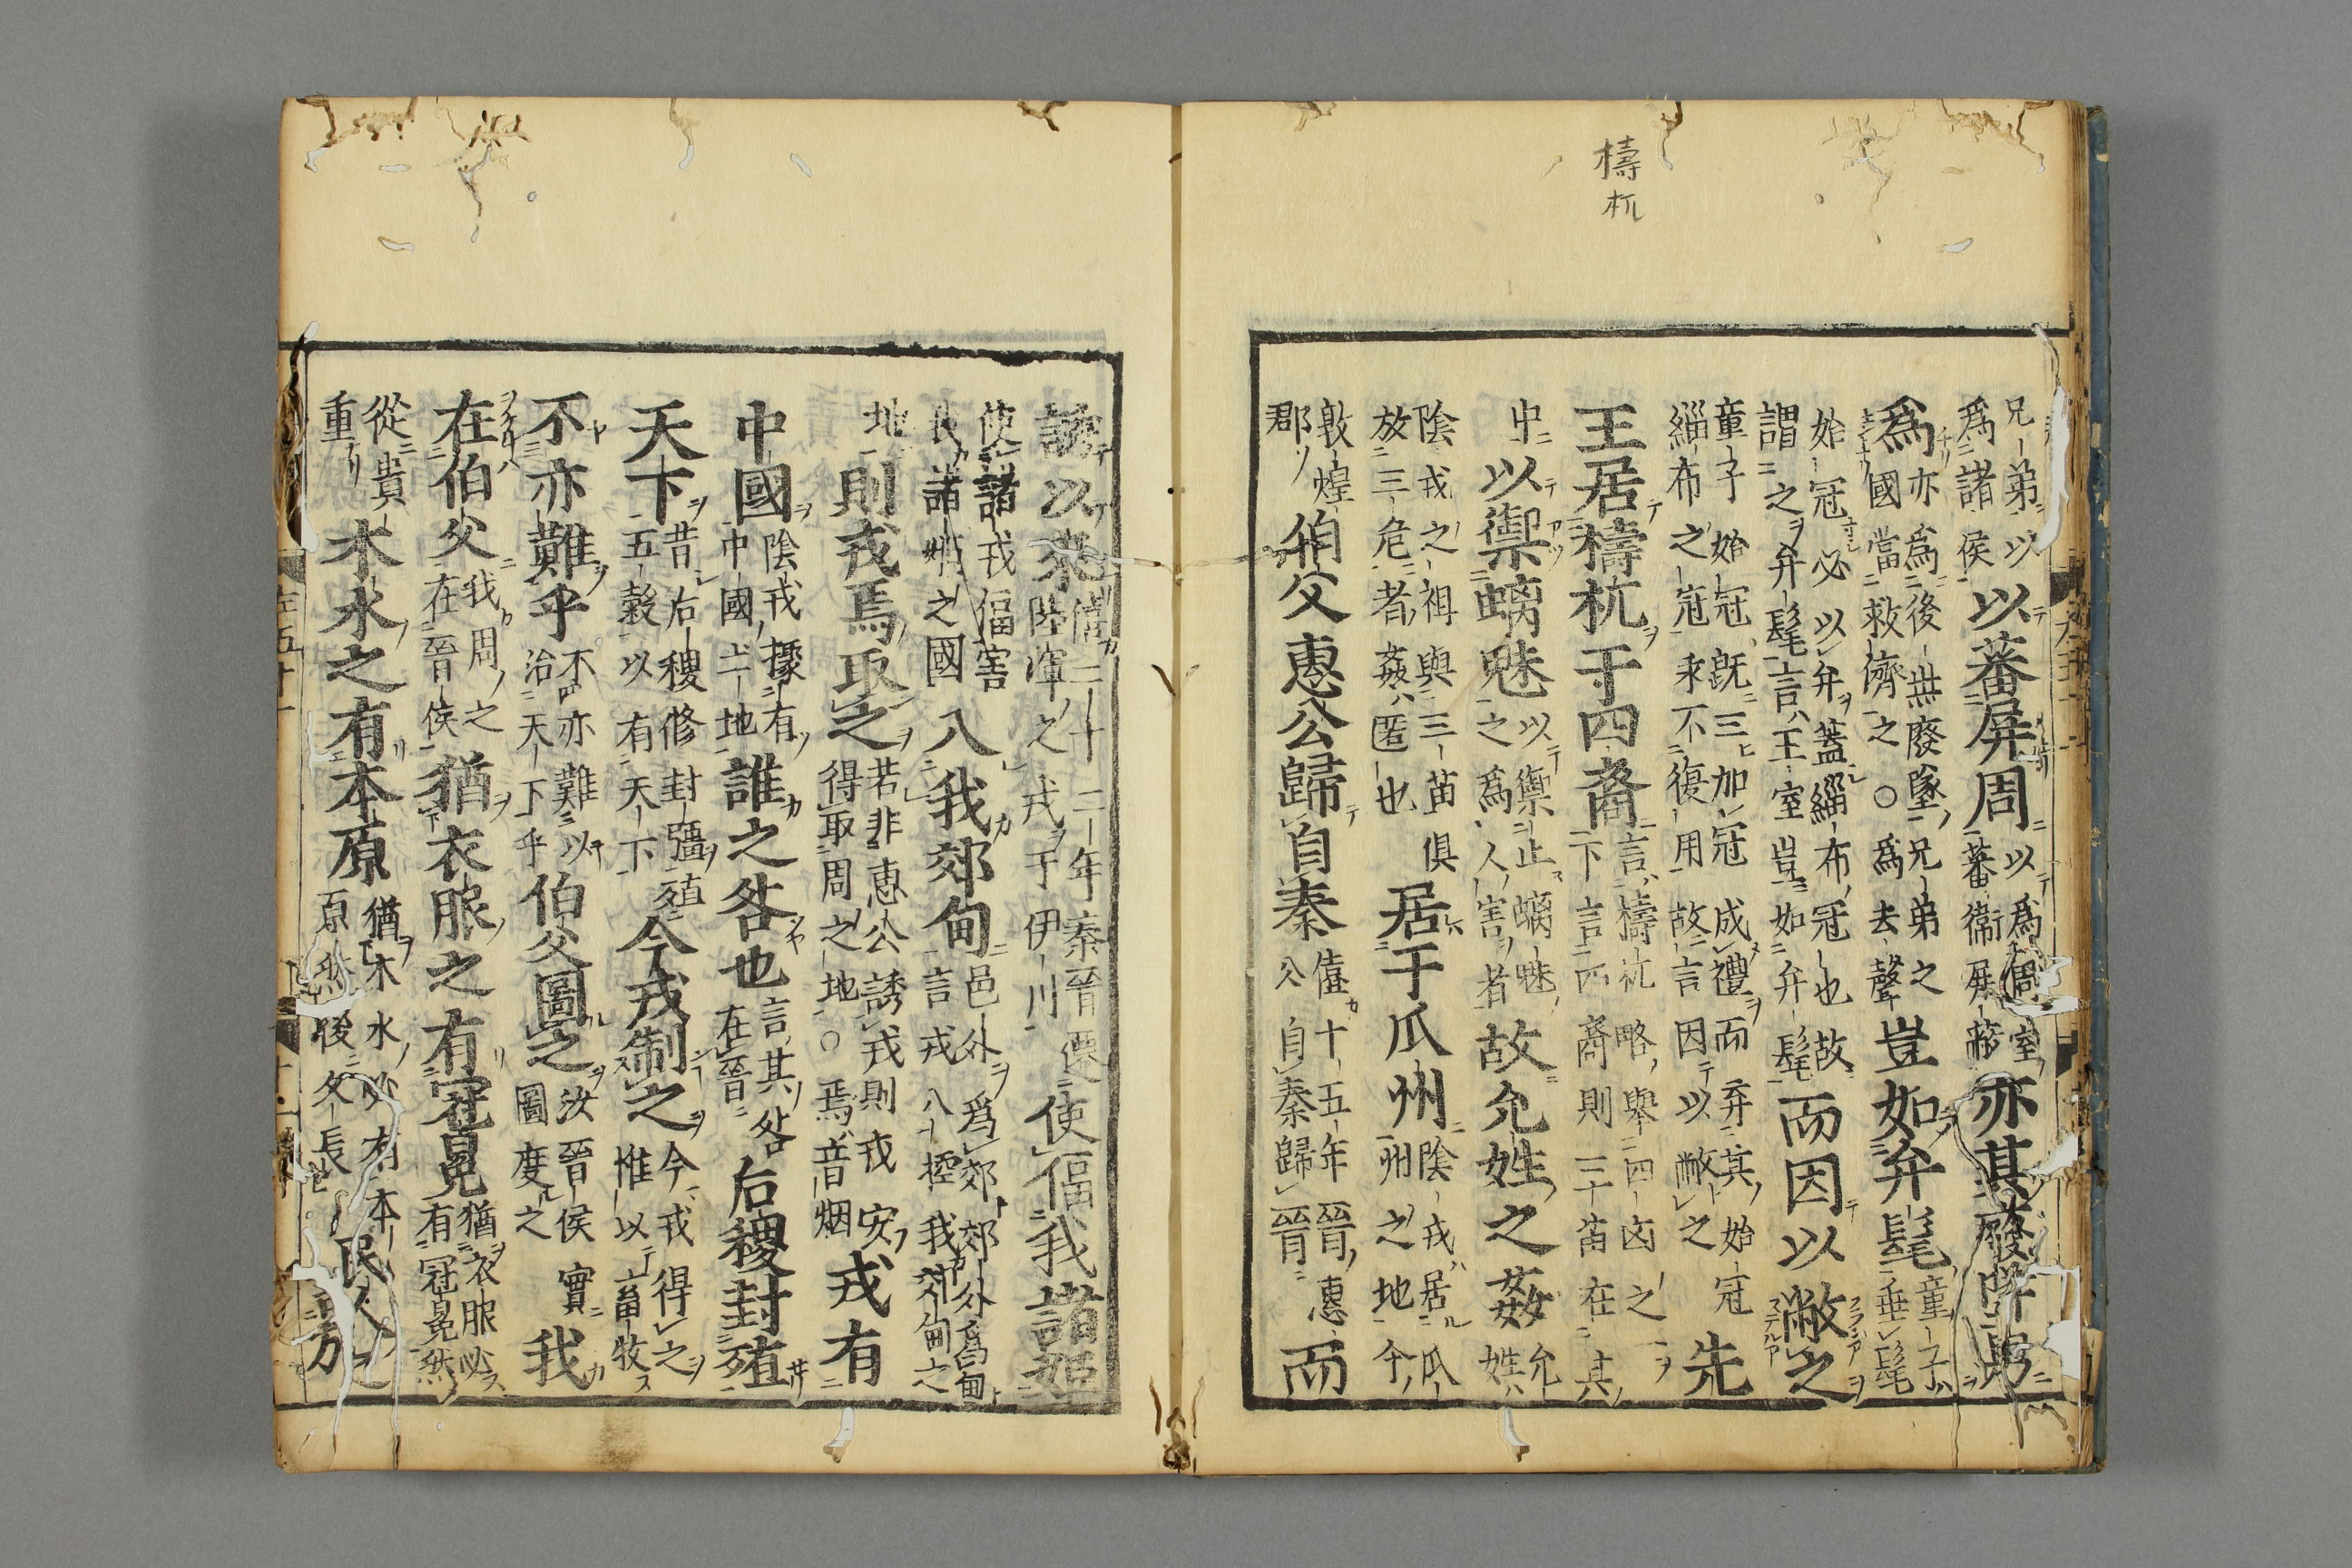 檮
杌
兄弟以
爲諸侯以蕃屏周以爲周室
蕃衛屏蔽亦其廢隊是
爲亦爲後世廢墜兄弟之
國當救濟之○爲去聲豈如弁髦童子
垂髦
始冠必以弁蓋緇布冠也故
謂之弁髦言王室豈如弁髦而因以敝之
童子始冠既三加冠成禮而弃其始冠
緇布之冠永不復用故言因以敝之先
王居檮杌于四裔言檮杌略舉四凶之一
下言四裔則三苗在其
中以禦螭魅以禦止螭魅
之爲人害者故允姓之姦允
姓
陰戎之祖與三苗俱
放三危者姦匿也居于瓜州陰戎居瓜
州之地今
敦煌
郡伯父惠公歸自秦僖十五年晉惠
公自秦歸晉而
誘以來僖二十二年秦晉遷
陸渾之戎于伊川使偪我諸姬
使諸戎偪害
我諸姬之國入我郊甸邑外爲郊郊外爲甸
言戎入撓我郊甸之
地則戎焉取之若非惠公誘戎則戎安
得取周之地○焉音烟戎有
中國陰戎據有
中國土地誰之咎也言其咎
在晉后稷封殖
天下昔后稷修封疆殖
五穀以有天下今戎制之今戎得之
惟以畜牧
不亦難乎不亦難以
治天下乎伯父圖之汝晉侯實
圖度之我
在伯父我周之
在晉侯猶衣服之有冠冕猶衣服必
有冠冕然
從貴
重木水之有本原猶木水必有本
原然後久長民人